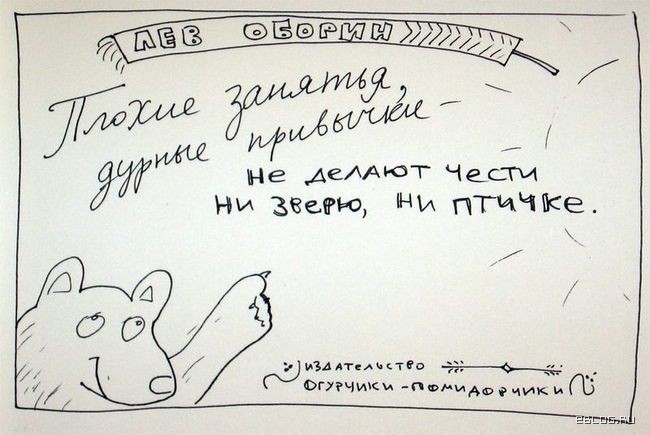 ЛЕВ ОБОРИН
Плохие занятья,
дурные привычки –
не делают чести
ни зверю, ни птичке.
издательство
огурчики-помидорчики
28LOS.RU